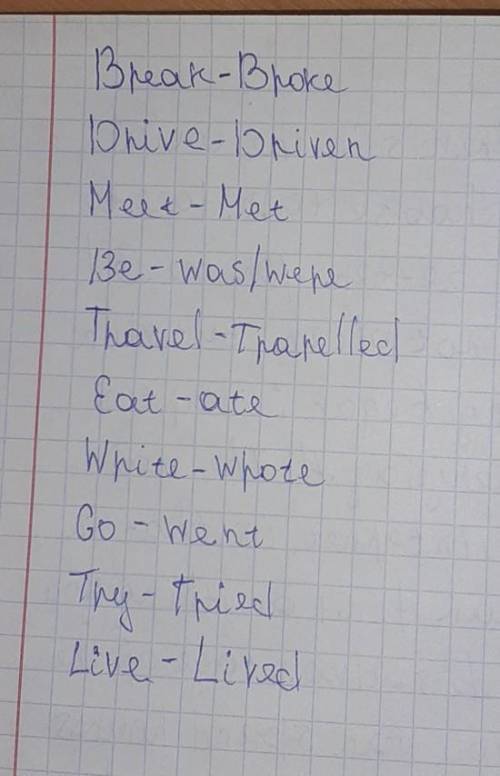 Break-Broke
Drive-Driven
Meet-Met
Be-was/were
Travel-Trarelled
Eat-ate
Write-Wrote
Go-went
Try-Tried
Live-Lived